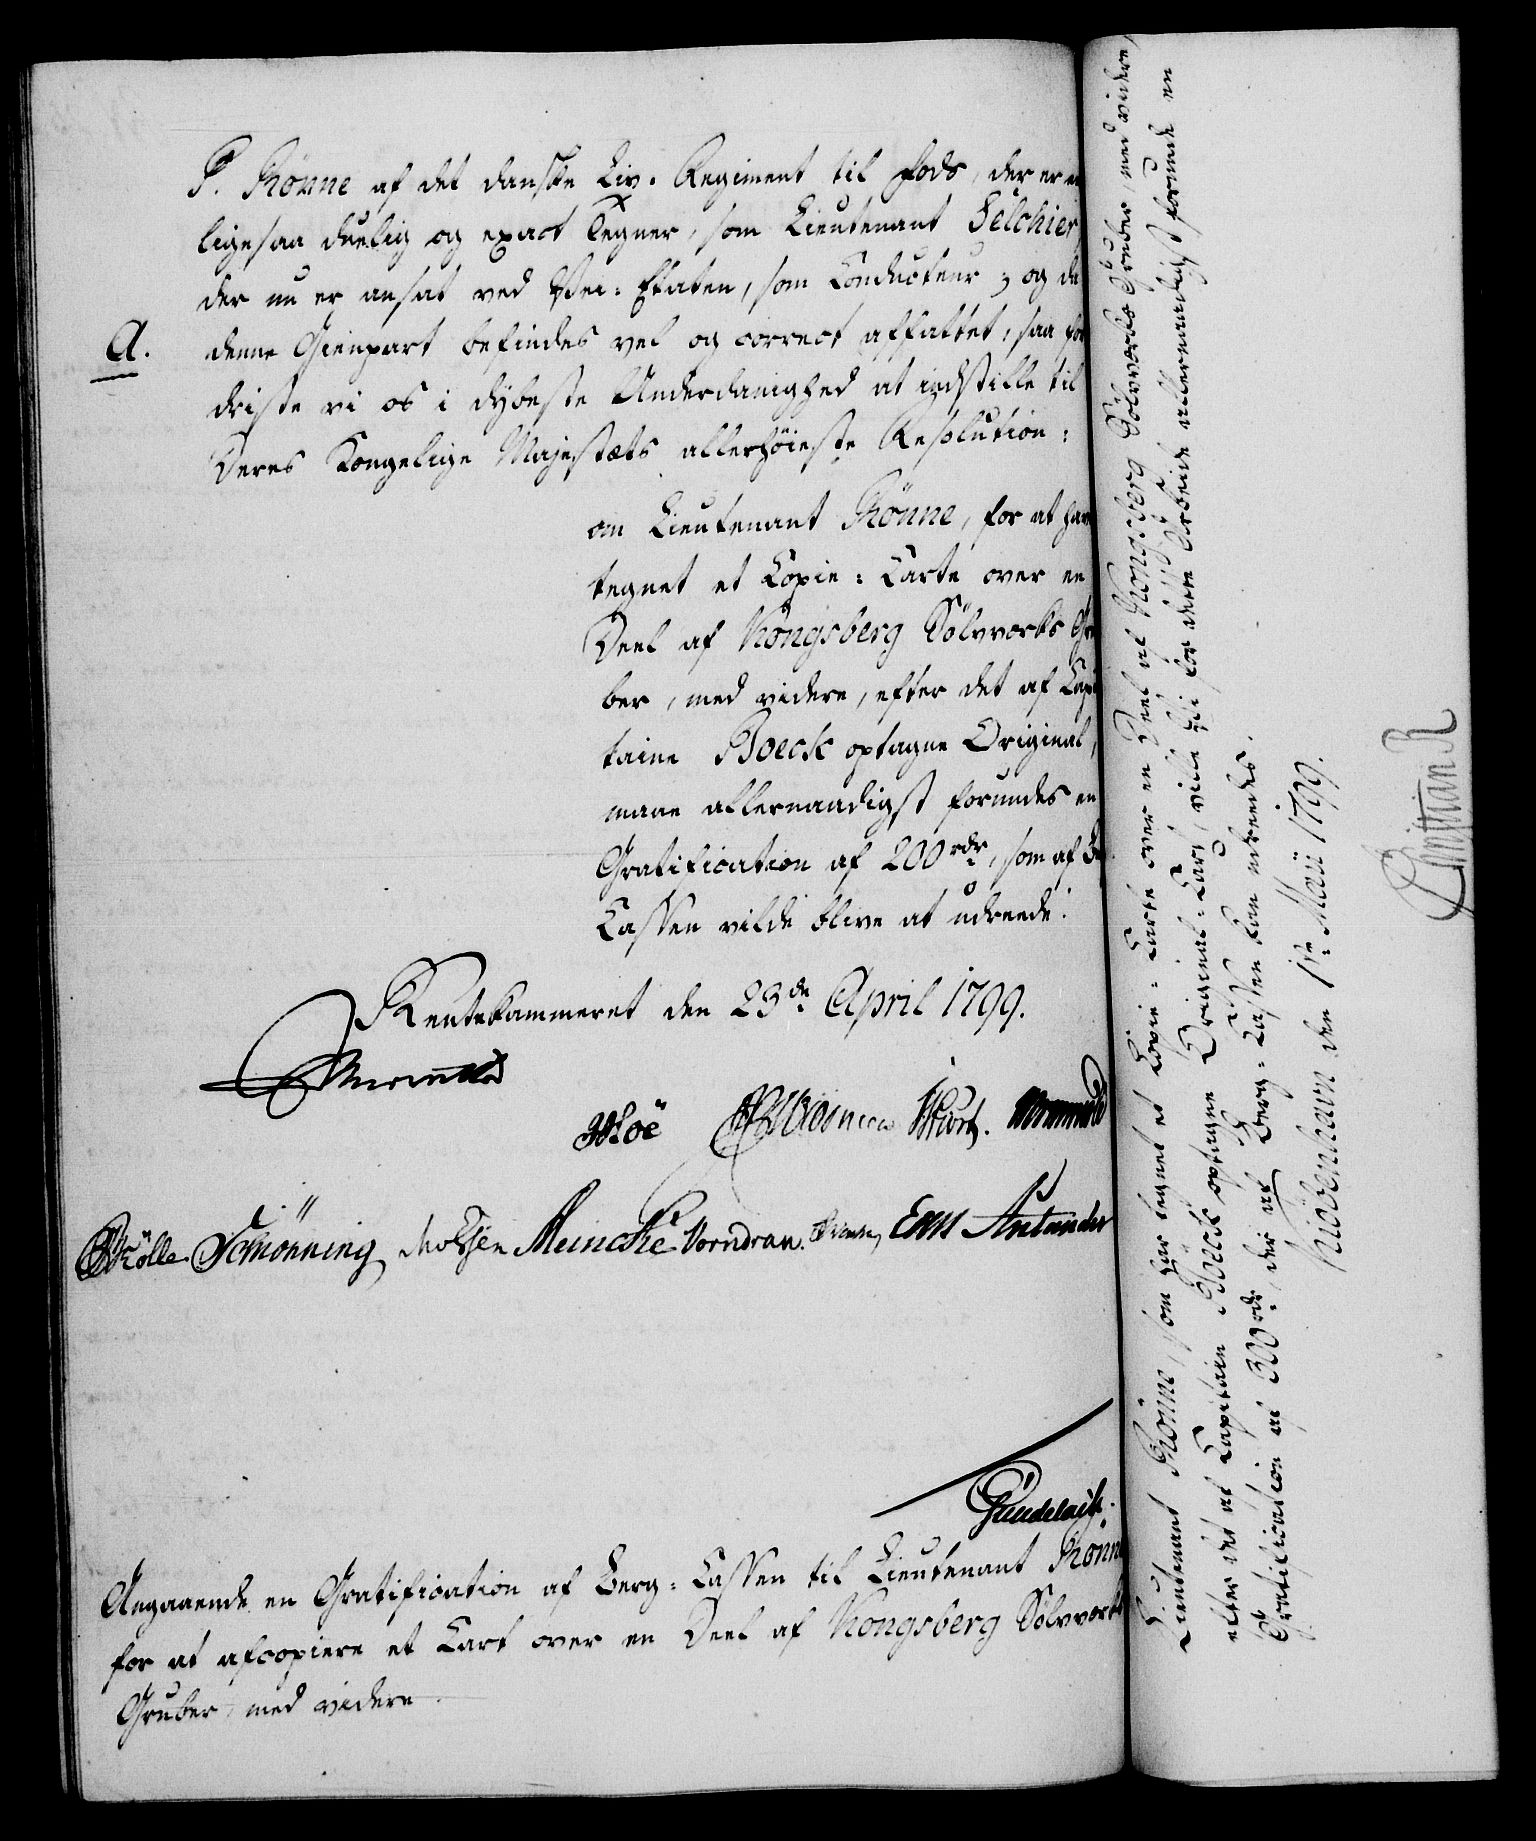 P. Rønne af det danske Liv-Regiment til Fods, der er en
ligesaa duelig og exact Tegner, som Lieutenant Selchier,
der nu er ansat ved Vei-Etaten, som Conducteur; og da
A.
denne Gienpart befindes vel og correct affattet, saa for-
driste vi os i dybeste Underdanighed at indstille til
Deres Kongelige Majestæts allerhøieste Resolution:
om Lieutenant Rönne, for at have
tegnet et Copie-Carte over en
Deel af Kongsberg Sölvværks Gru-
ber, med videre, efter det af Capi-
taine Boeck optagne Original,
maae allernaadigst forundes en
Gratification af 200 rdr, som af Berg-
Cassen vilde blive at udreede.
Rentekammeret den 23de April 1799.
Moë
Schiönning Meincke Vorndran. Ernst
Angaaende en Gratification af Berg-Cassen til Lieutenant Rönne
for at afcopiere et Cart over en Deel af Kongsberg Sölvværks
Gruber, med videre.
Lieutenant Rönne, som har tegnet et Copie-Carte over en Deel af Kongsberg Sölvværks Gruber, med videre,
efter det af Capitain Boeck optagne Original-Cart, ville Vi for dette Arbeide allernaadigst forunde en
Gratification af 300 rdr, der af Berg-Cassen kan udreedes.
Kiöbenhavn den 1ste Maii 1799.
Christian R